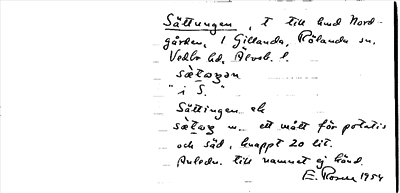 Sättungen, t till hmd Nord-
gården, 1 Gillanda, Rölanda sn,
Vedbo hd, Älvsb. l.
sàt̀aŋən
"i S."
Sättingen ek
sàt̀aŋ m. ett mått för potatis
och säd, knappt 20 lit.
Anledn. till namnet ej känd.
E. Rosen 1954